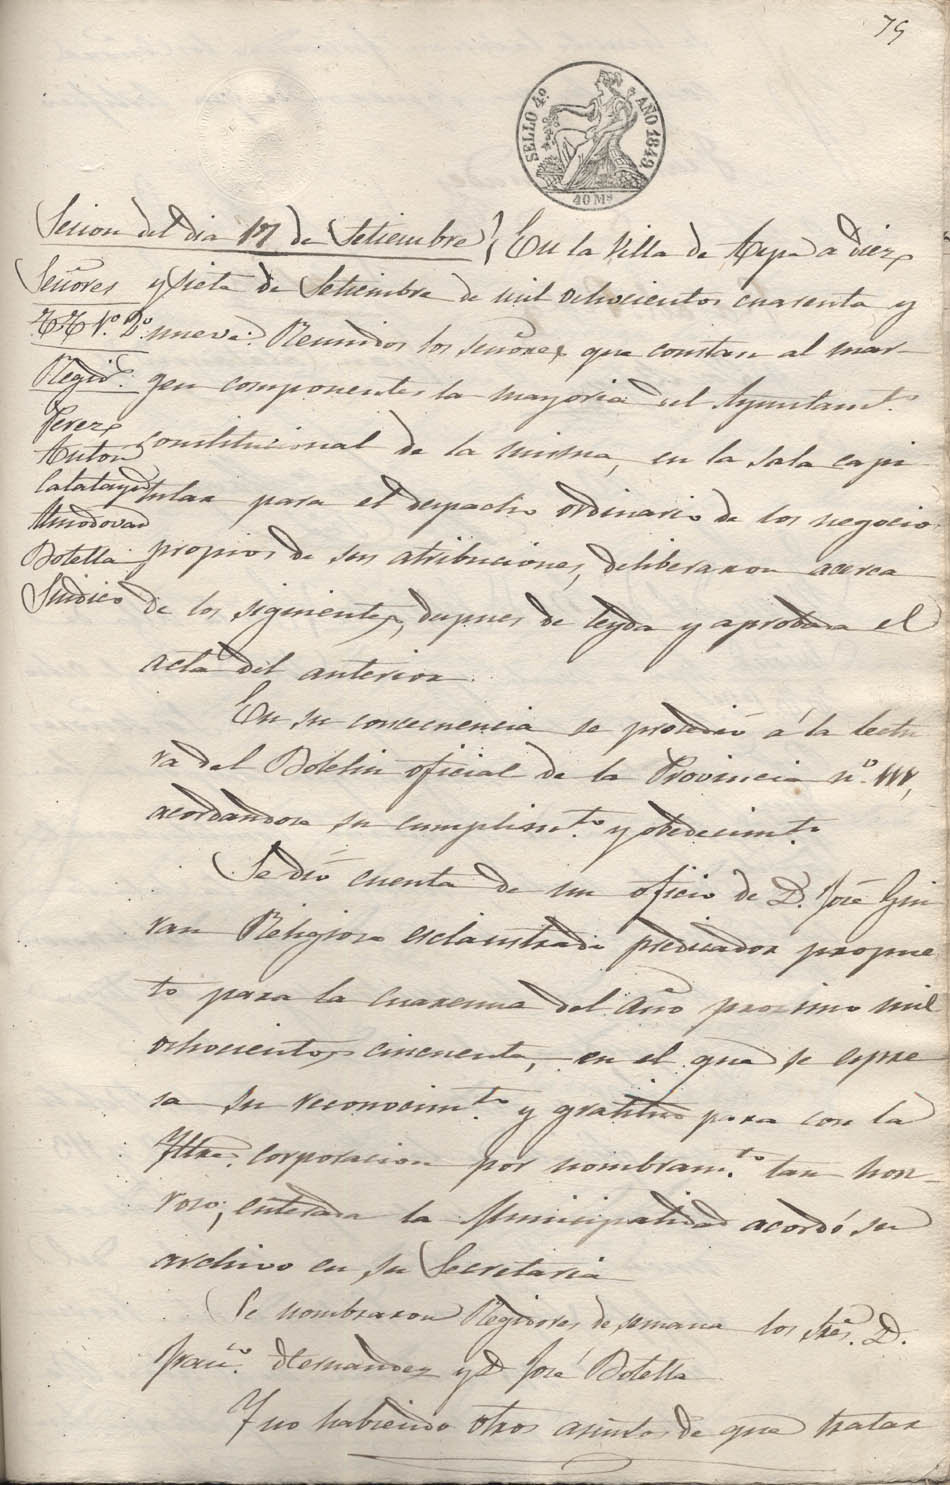 75
SELLO 4º AÑO 1849.
40 Ms
Sesion del dia 17 de Setiembre
Señores
TT 1º 2º
Regid.s
Perez
Anton
Calatayud
Almodovar
Botella
Sindico
En la Villa de Aspe a diez
y siete de Setiembre de mil ochocientos cuarenta y
nueve: Reunidos los señores que constan al mar-
gen componentes la mayoria del Ayuntamt.º
constitucional de la misma, en la sala capi
tular para el despacho ordinario de los negocios
propios de sus atribuciones, deliberaron acerca
de los siguientes, despues de leyda y aprobada el
acta del anterior.
En su consecuencia se procedió á la lectu
ra del Boletin oficial de la Provincia nº 111,
acordandose su cumplimt.º y obedecimt.º
Se dió cuenta de un oficio de D. José Gui
ran Religioso esclaustrado predicador propues
to para la cuaresma del año proximo mil
ochocientos cincuenta, en el que se espre
sa su reconocimt.º y gratitud para con la
Iltre. corporacion por nombramt.º tan hon-
roso; enterada la Municipalidad acordó su
archivo en su Secretaria
Se nombraron Regidores de semana los Sres. D.
Franco. Hernandez y D José Botella
Y no habiendo otros asuntos de que tratar